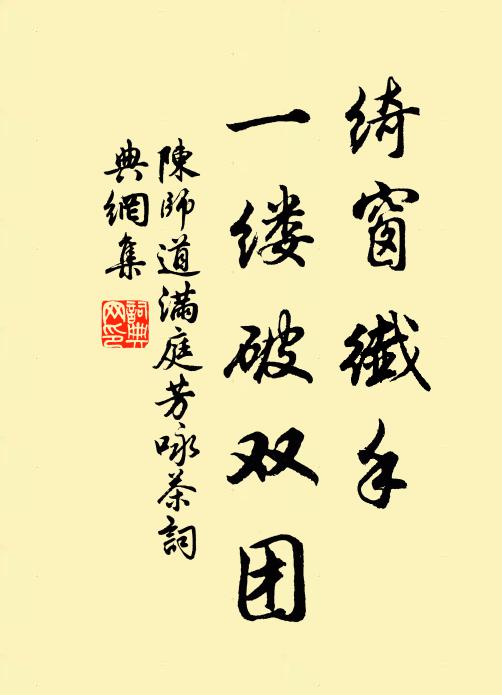 绮窗纤手
一缕破双团
陳師道满庭芳咏茶詞
典網集
詞典网印